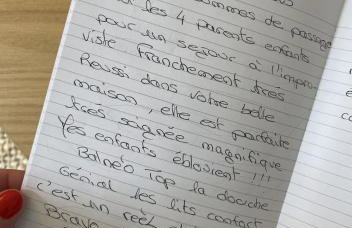 ommes de passage
les 4 parents enfants
pour un sejour à l'impro-
viste franchement très
Reussi dans votre belle
maison, elle est parfaite
très soignée magnifique
Yes enfants éblouient !!!
Balnéo Top la douche
génial les lits confort
c'est un réel
Bravo